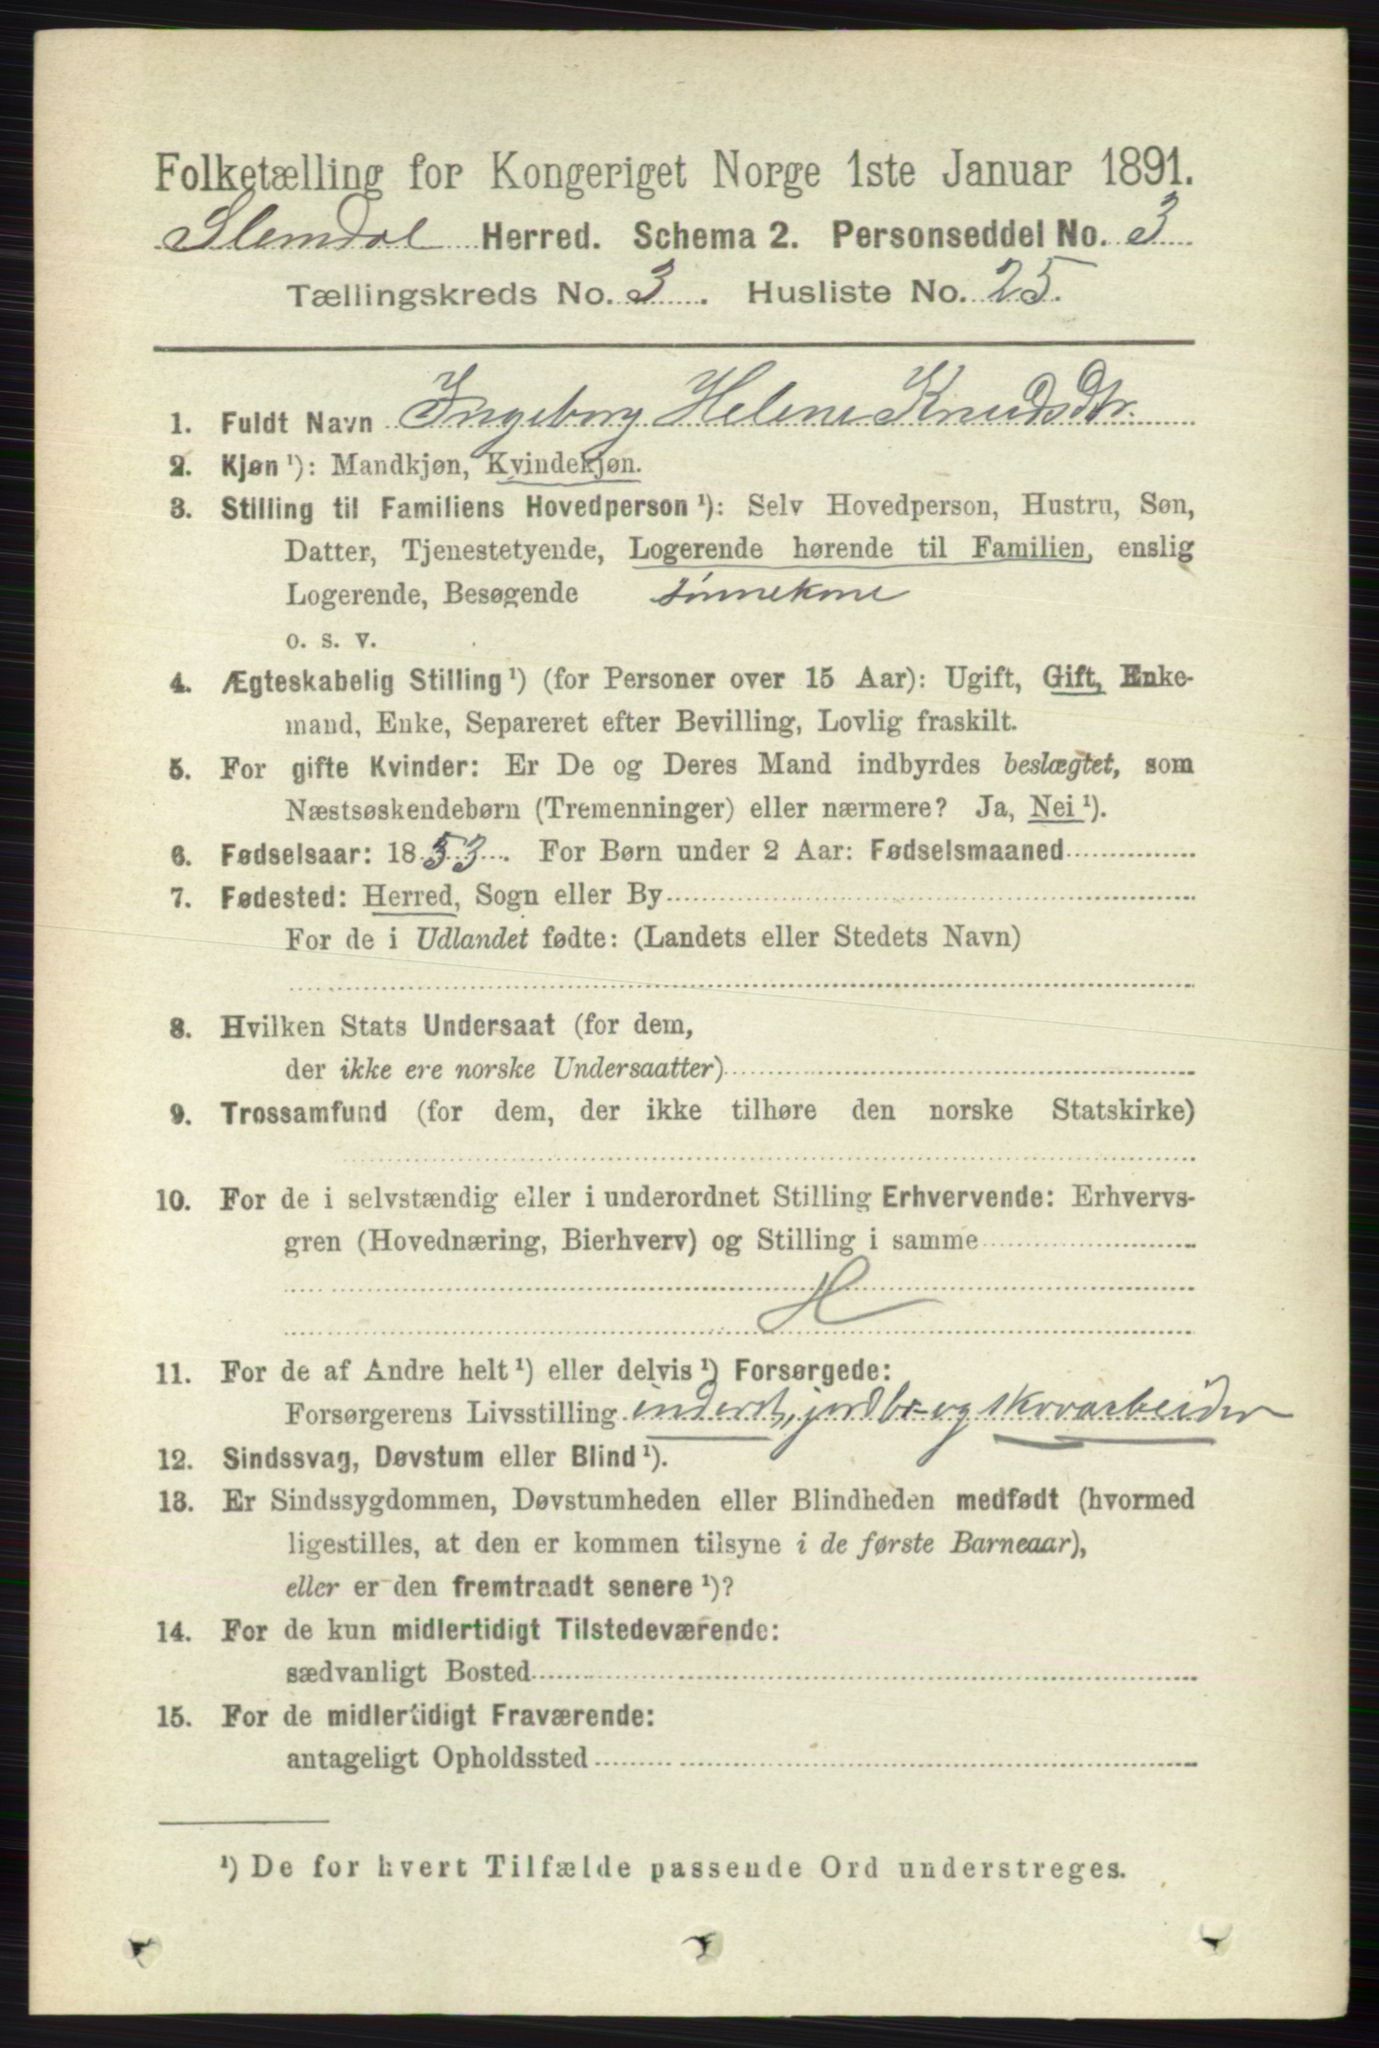 Folketælling for Kongeriget Norge 1ste Januar 1891.
Slemdal Herred. Schema 2. Personseddel No. 3
Tællingskreds No. 3. Husliste No. 25.
1. Fuldt Navn Ingeborg Helene Knudsdtr.
2. Kjøn¹): Mandkjøn, Kvindekjøn.
3. Stilling til Familiens Hovedperson¹): Selv Hovedperson, Hustru, Søn,
Datter, Tjenestetyende, Logerende hørende til Familien, enslig
Logerende, Besøgende sønnekone
o. s. v.
4. Ægteskabelig Stilling¹) (for Personer over 15 Aar): Ugift, Gift, Enke-
mand, Enke, Separeret efter Bevilling, Lovlig fraskilt.
5. For gifte Kvinder: Er De og Deres Mand indbyrdes beslægtet, som
Næstsøskendebørn (Tremenninger) eller nærmere? Ja, Nei¹).
6. Fødselsaar: 1853. For Børn under 2 Aar: Fødselsmaaned
7. Fødested: Herred, Sogn eller By
For de i Udlandet fødte: (Landets eller Stedets Navn)
8. Hvilken Stats Undersaat (for dem,
der ikke ere norske Undersaatter)
9. Trossamfund (for dem, der ikke tilhøre den norske Statskirke)
10. For de i selvstændig eller i underordnet Stilling Erhvervende: Erhvervs-
gren (Hovednæring, Bierhverv) og Stilling i samme
H
11. For de af Andre helt¹) eller delvis¹) Forsørgede:
Forsørgerens Livsstilling inderst, jordbr- og skovarbeider
12. Sindssvag, Døvstum eller Blind¹).
13. Er Sindssygdommen, Døvstumheden eller Blindheden medfødt (hvormed
ligestilles, at den er kommen tilsyne i de første Barneaar),
eller er den fremtraadt senere¹)?
14. For de kun midlertidigt Tilstedeværende:
sædvanligt Bosted
15. For de midlertidigt Fraværende:
antageligt Opholdssted
¹) De for hvert Tilfælde passende Ord understreges.